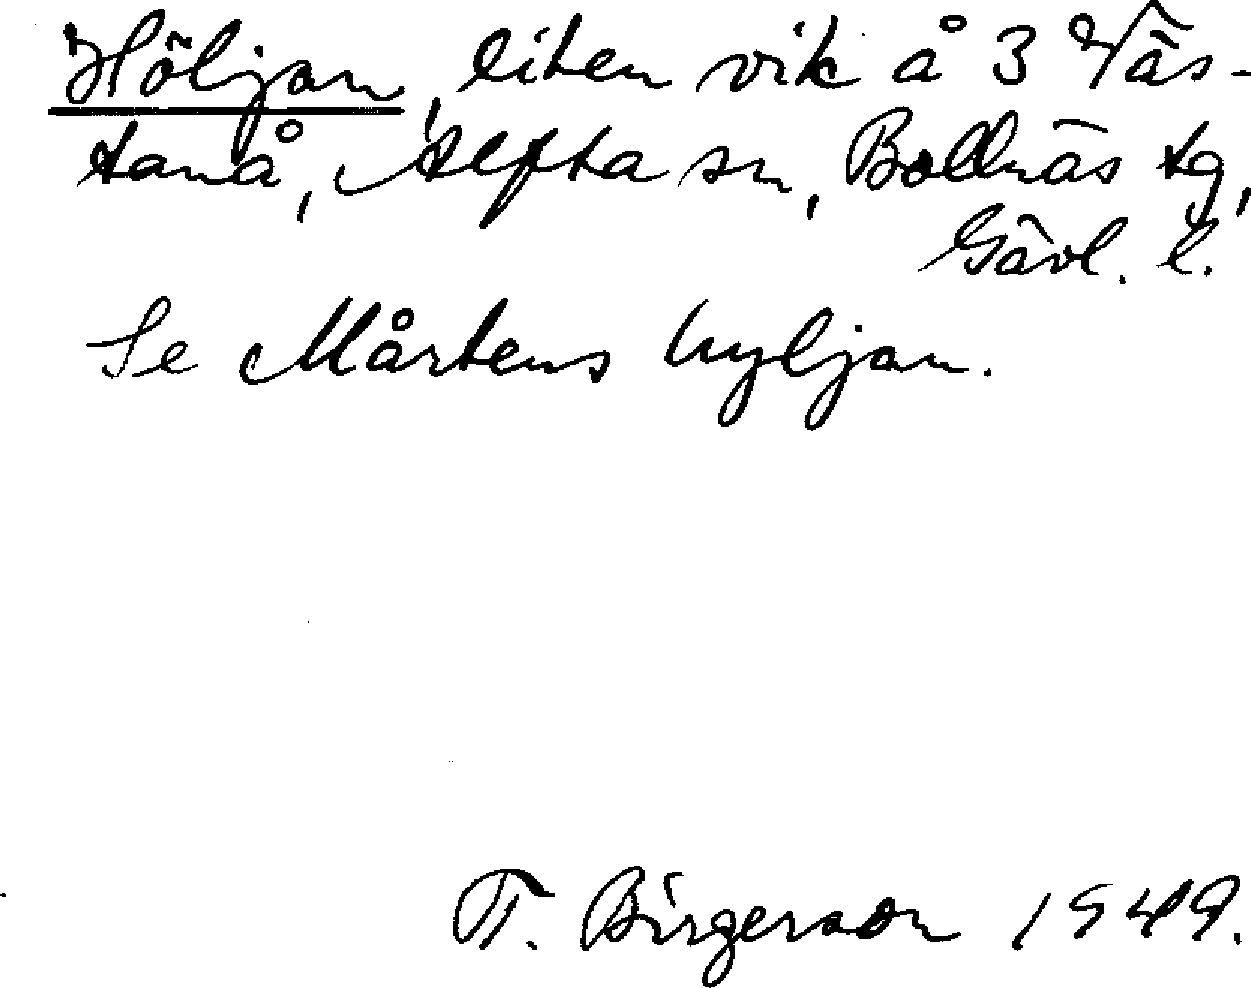 Höljan, liten vik å 3 Väs-
tanå, Alfta sn, Bollnäs tg,
Gävl. l.
Se Mårtens hyljan.
T. Birgerson 1949.